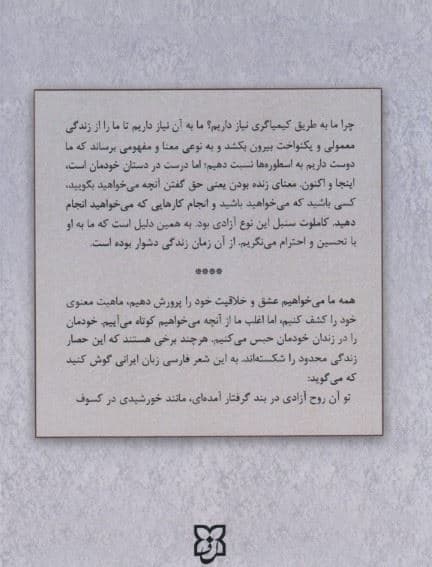 چرا ما به طریق کیمیاگری نیاز داریم؟ ما به آن نیاز داریم تا ما را از زندگی
معمولی و یکنواخت بیرون بکشد و به نوعی معنا و مفهومی برساند که ما
دوست داریم به اسطوره‌ها نسبت دهیم؛ اما درست در دستان خودمان است،
اینجا و اکنون. معنای زنده بودن یعنی حق گفتن آنچه می‌خواهید بگویید،
کسی باشید که می‌خواهید باشید و انجام کارهایی که می‌خواهید انجام
دهید. کاملوت سنبل این نوع آزادی بود. به همین دلیل است که ما به او
با تحسین و احترام می‌نگریم. از آن زمان زندگی دشوار بوده است.
****
همه ما می‌خواهیم عشق و خلاقیت خود را پرورش دهیم، ماهیت معنوی
خود را کشف کنیم، اما اغلب ما از آنچه می‌خواهیم کوتاه می‌آییم. خودمان
را در زندان خودمان حبس می‌کنیم. هرچند برخی هستند که این حصار
زندگی محدود را شکسته‌اند. به این شعر فارسی زبان ایرانی گوش کنید
که می‌گوید:
تو آن روح آزادی در بند گرفتار آمده‌ای، مانند خورشیدی در کسوف